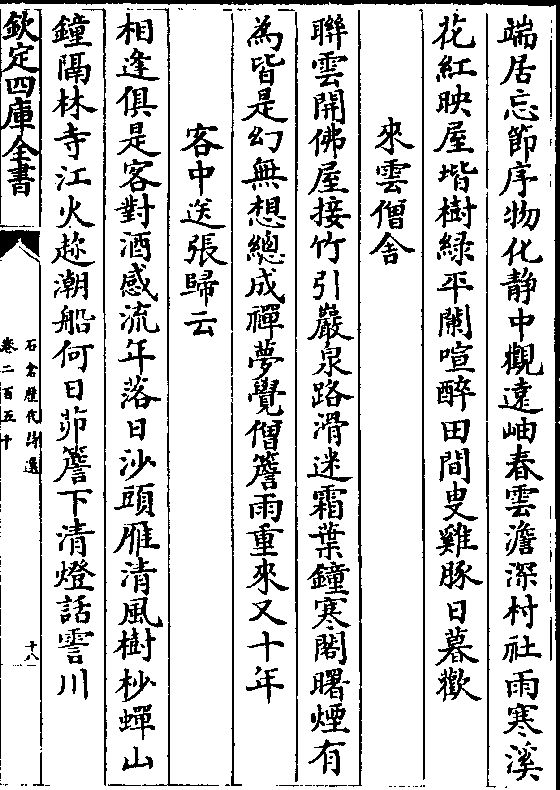 端居忘節序物化静中觀遠岫春雲澹深村社雨寒溪
花紅映屋堦樹緑平闌喧醉田間叟雞豚日暮歡
來雲僧舍
聨雲開佛屋接竹引巖泉路滑迷霜葉鐘寒閣曙煙有
為皆是幻無想總成禪夢覺僧簷雨重來又十年
客中送張歸云
相逢俱是客對酒感流年落日沙頭雁清風樹杪蟬山
鐘隔林寺江火趂潮船何日茆簷下清燈話霅川
欽定四庫全書
石倉歴代詩選
卷二百五十
十八